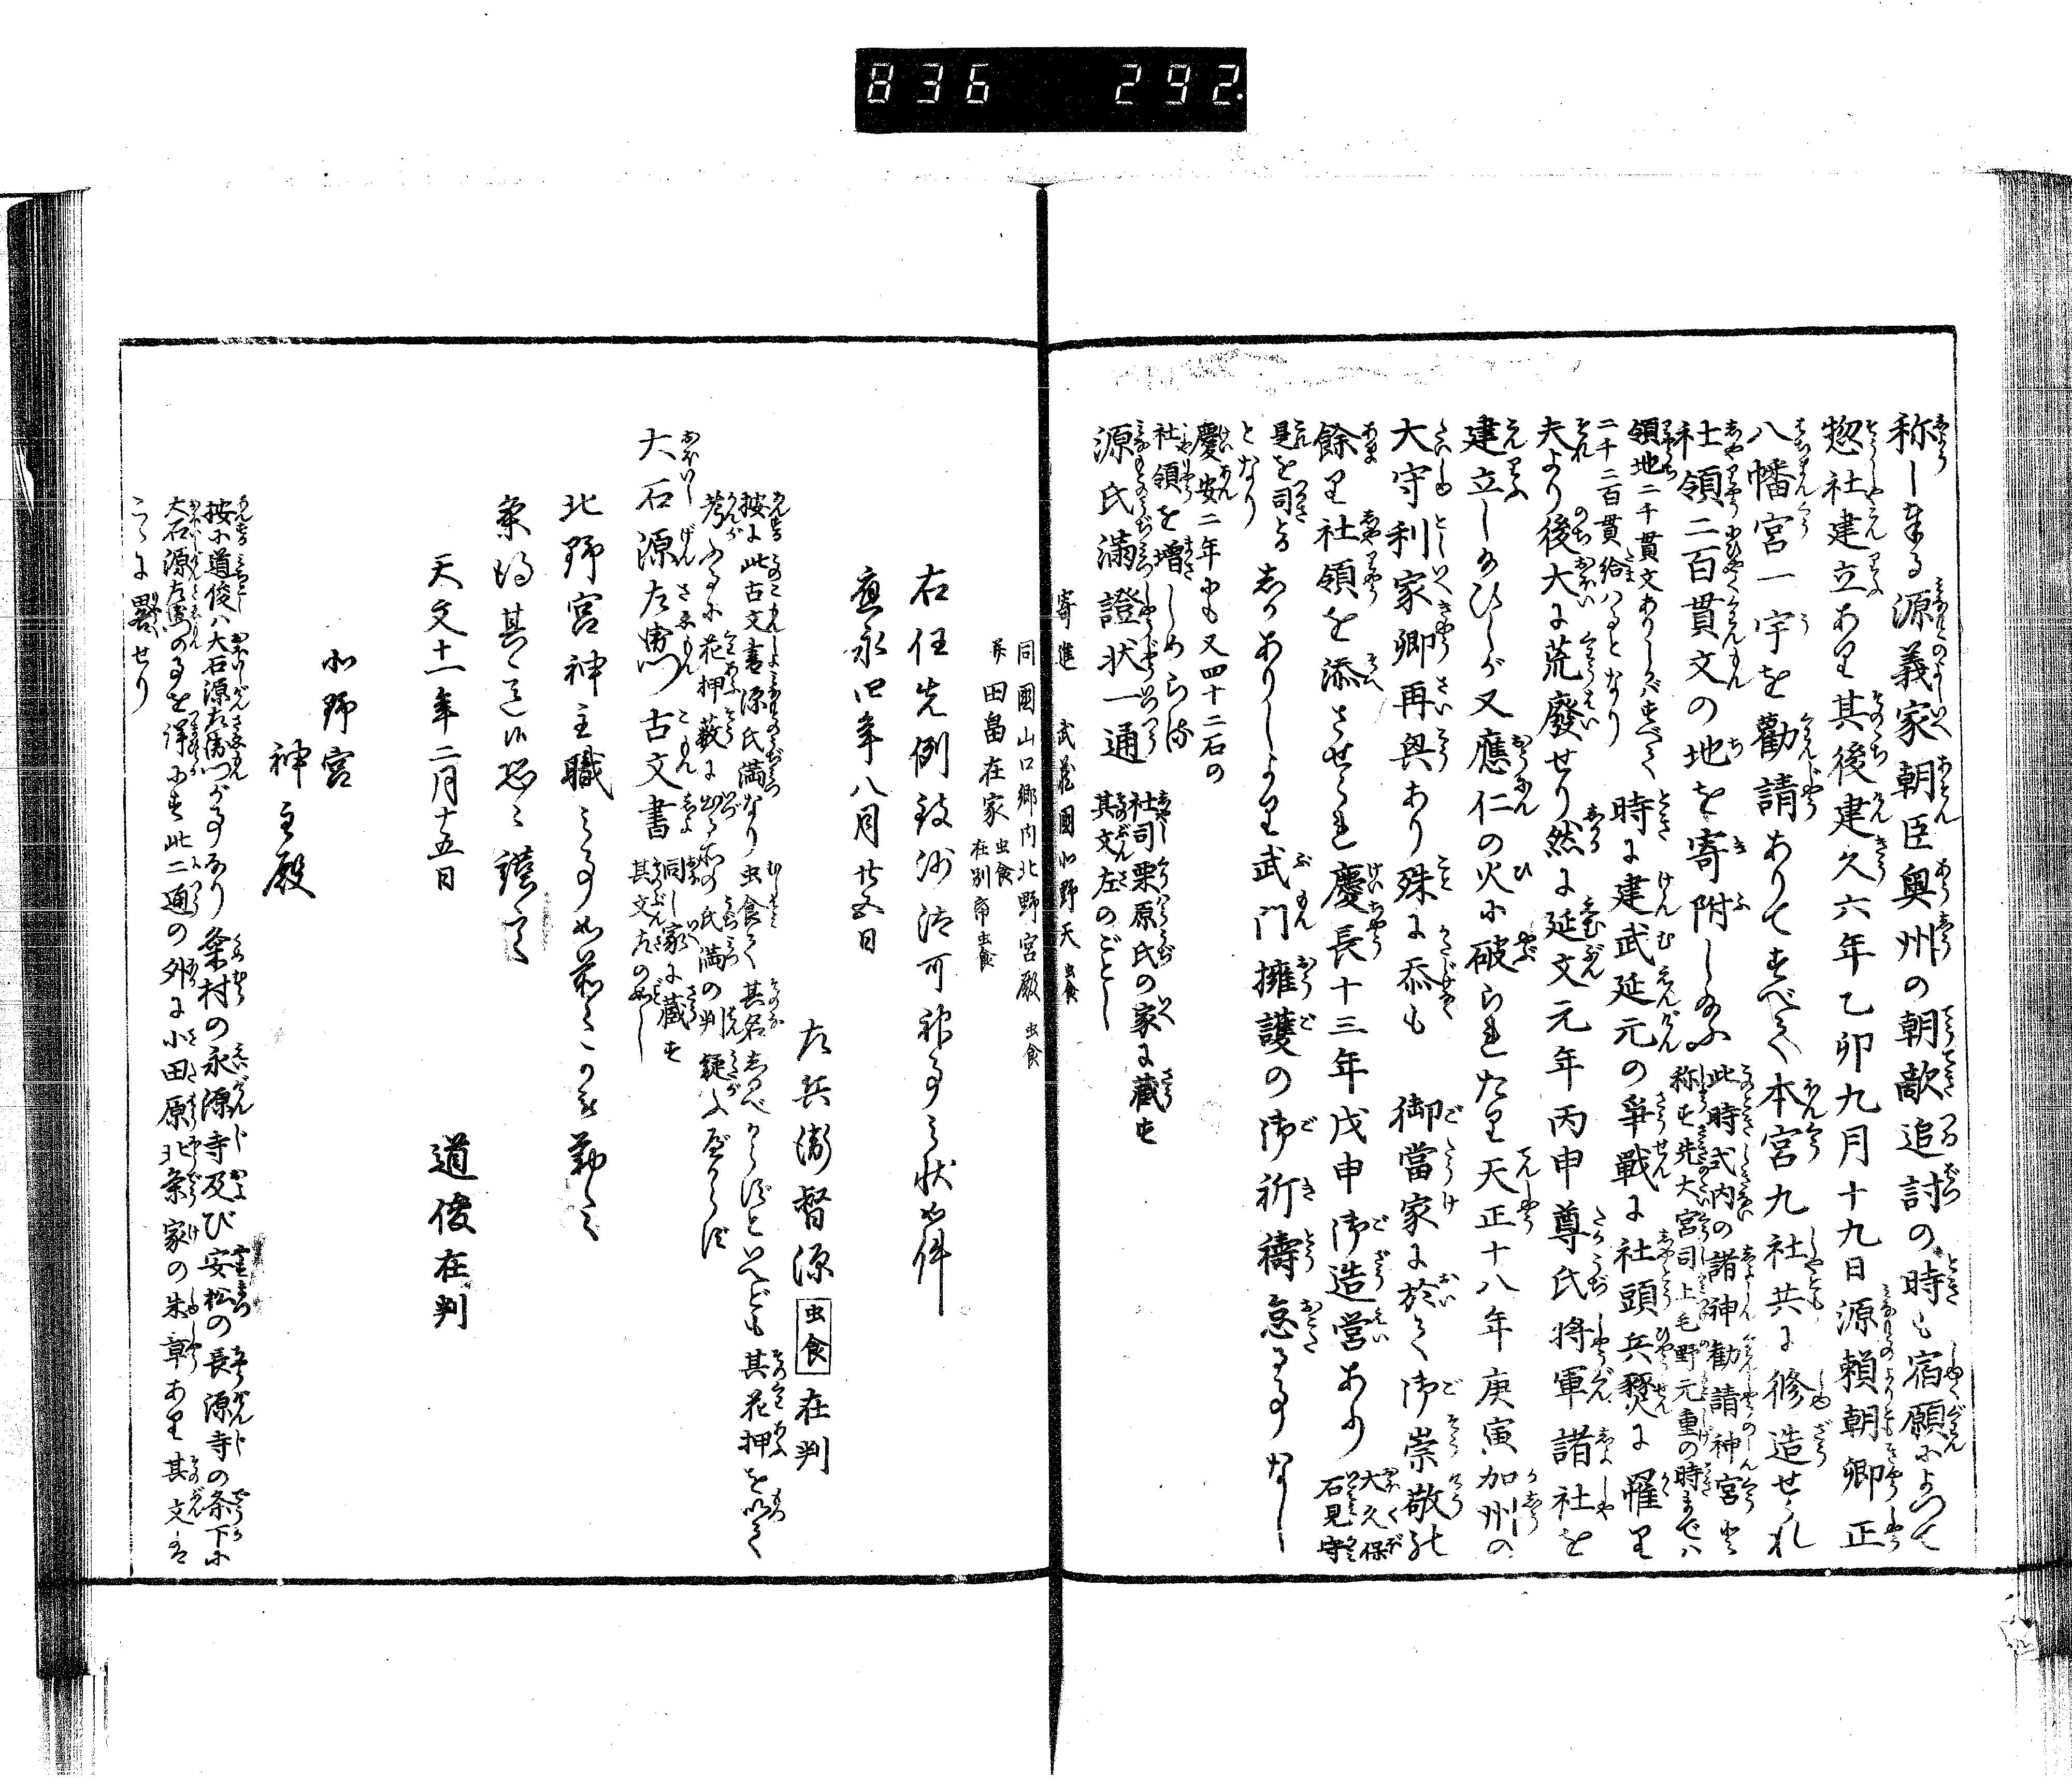 836 292.
称し奉る源義家朝臣奥州の朝敵追討の時も宿願によつて
惣社建立あり其後建久六年乙卯九月十九日源頼朝卿正
八幡宮一宇を勧請ありてすべて本宮九社共に修造せられ
社領二百貫文の地を寄附し給ふ
此時式内の諸神勧請神宮と
称す先大宮司上毛野元重の時までハ
領地二千貫文ありしがバすべて
二千二百貫給ハるとなり
時に建武延元の爭戰に社頭兵燹に罹り
夫より後大に荒廢せり然に延文元年丙申尊氏将軍諸社を
建立し給ひしが又應仁の火に破られたり天正十八年庚寅加州の
大守利家卿再興あり殊に忝も 御當家に於て御崇敬
餘り社領を添させられ慶長十三年戊申御造営あり
大久保
石見守
是を司る
となり
しかありしより武門擁護の御祈禱怠る事なし
慶安二年にも又四十二石の
社領を増しめらる
源氏滿證状一通
社司栗原氏の家に蔵す
其文左のごとし
寄進 武蔵國北野天 虫食
同國山口郷内北野宮殿 虫食
田畠在家
虫食
在別
虫食
右任先例致沙汰可祢事之状如件
應永四年八月廿五日
左兵衛督源 虫食 在判
按に此古文書源氏満なり虫食て其名しるべからずといへども其花押を以て
考ふるに花押藪に出る所の氏満の判 疑ふべからず
大石源左衛門古文書
同し家に蔵す
其文左の如し
北野宮神主職之事如前々可被勤之
天文十一年二月十五日
道俊在判
北野宮
神主殿
按に道俊ハ大石源左衛門が事なり粂村の永源寺及び安松の長源寺の条下に
大石源左衛門の事を詳にす此二通の外に小田原北条家の朱章あり其文
こゝに畧せり